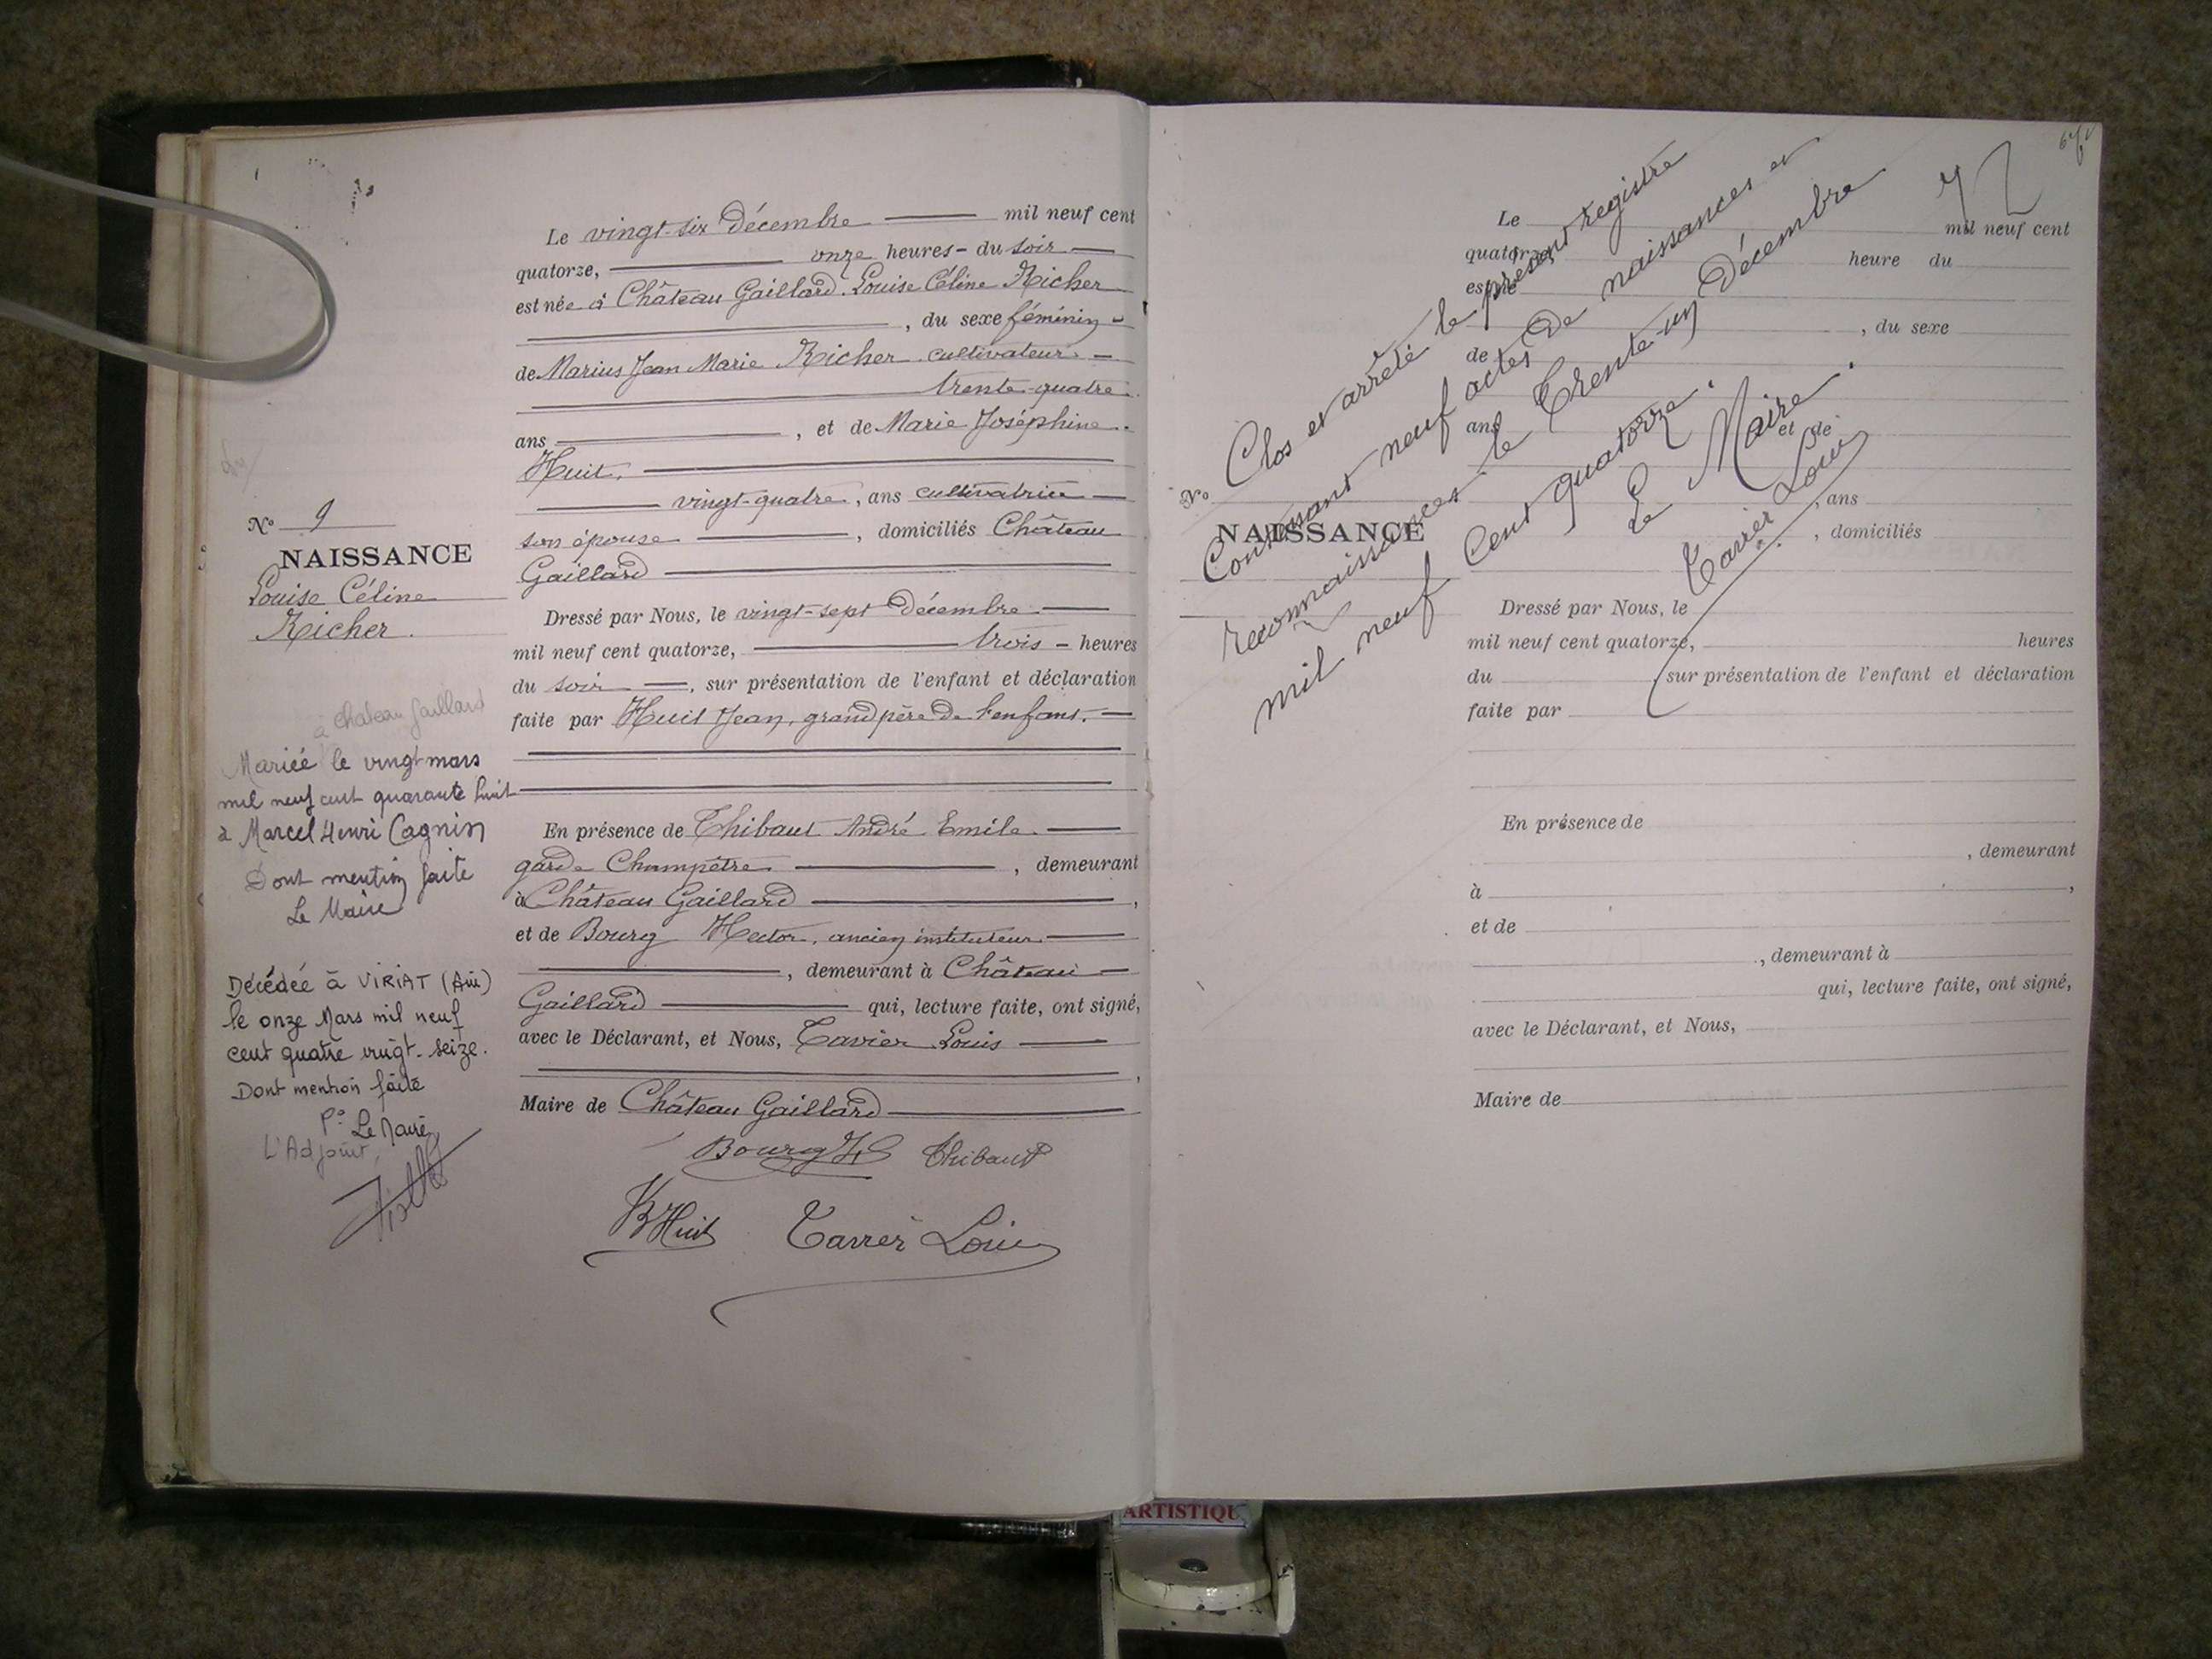 N° 9
NAISSANCE
Louise Céline
Richer.
à Chateau Gaillard
Mariée le vingt mars
mil neuf cent quarante huit
à Marcel Henri Cagnin
Dont mention faite
Le Maire
Décédée à VIRIAT (Ain)
le onze Mars mil neuf
cent quatre vingt-seize.
Dont mention faite
P° Le Maire,
L'Adjoint,
Le vingt-six Décembre mil neuf cent
quatorze, onze heures - du soir
est née à Château Gaillard. Louise Céline Richer
, du sexe féminin
de Marius Jean Marie Richer cultivateur
trente-quatre
ans , et de Marie Joséphine
Huit,
vingt-quatre, ans cultivatrice
son épouse , domiciliés Château
Gaillard
Dressé par Nous, le vingt-sept Décembre
mil neuf cent quatorze, trois - heures
du soir , sur présentation de l'enfant et déclaration
faite par Huit Jean, grand père de l'enfant.
En présence de Thibaut André Emile
garde Champêtre , demeurant
à Château Gaillard ,
et de Bourg Hector, ancien instituteur
, demeurant à Château
Gaillard qui, lecture faite, ont signé,
avec le Déclarant, et Nous, Tavier Louis
,
Maire de Château Gaillard
Bourg H Thibaut
Huit Tavier Louis
72
Clos et arrêté le présent registre
Contenant neuf actes de naissances et
reconnaissances le Trente-un Décembre
mil neuf Cent quatorze.
Le Maire.
Tavier Louis
Le mil neuf cent
quatorze, heure du
est né
, du sexe
de
ans et de
N°
, ans
NAISSANCE
, domiciliés
Dressé par Nous, le
mil neuf cent quatorze, heures
du sur présentation de l'enfant et déclaration
faite par
En présence de
, demeurant
à ,
et de
, demeurant à
qui, lecture faite, ont signé,
avec le Déclarant, et Nous,
Maire de
ARTISTIQU